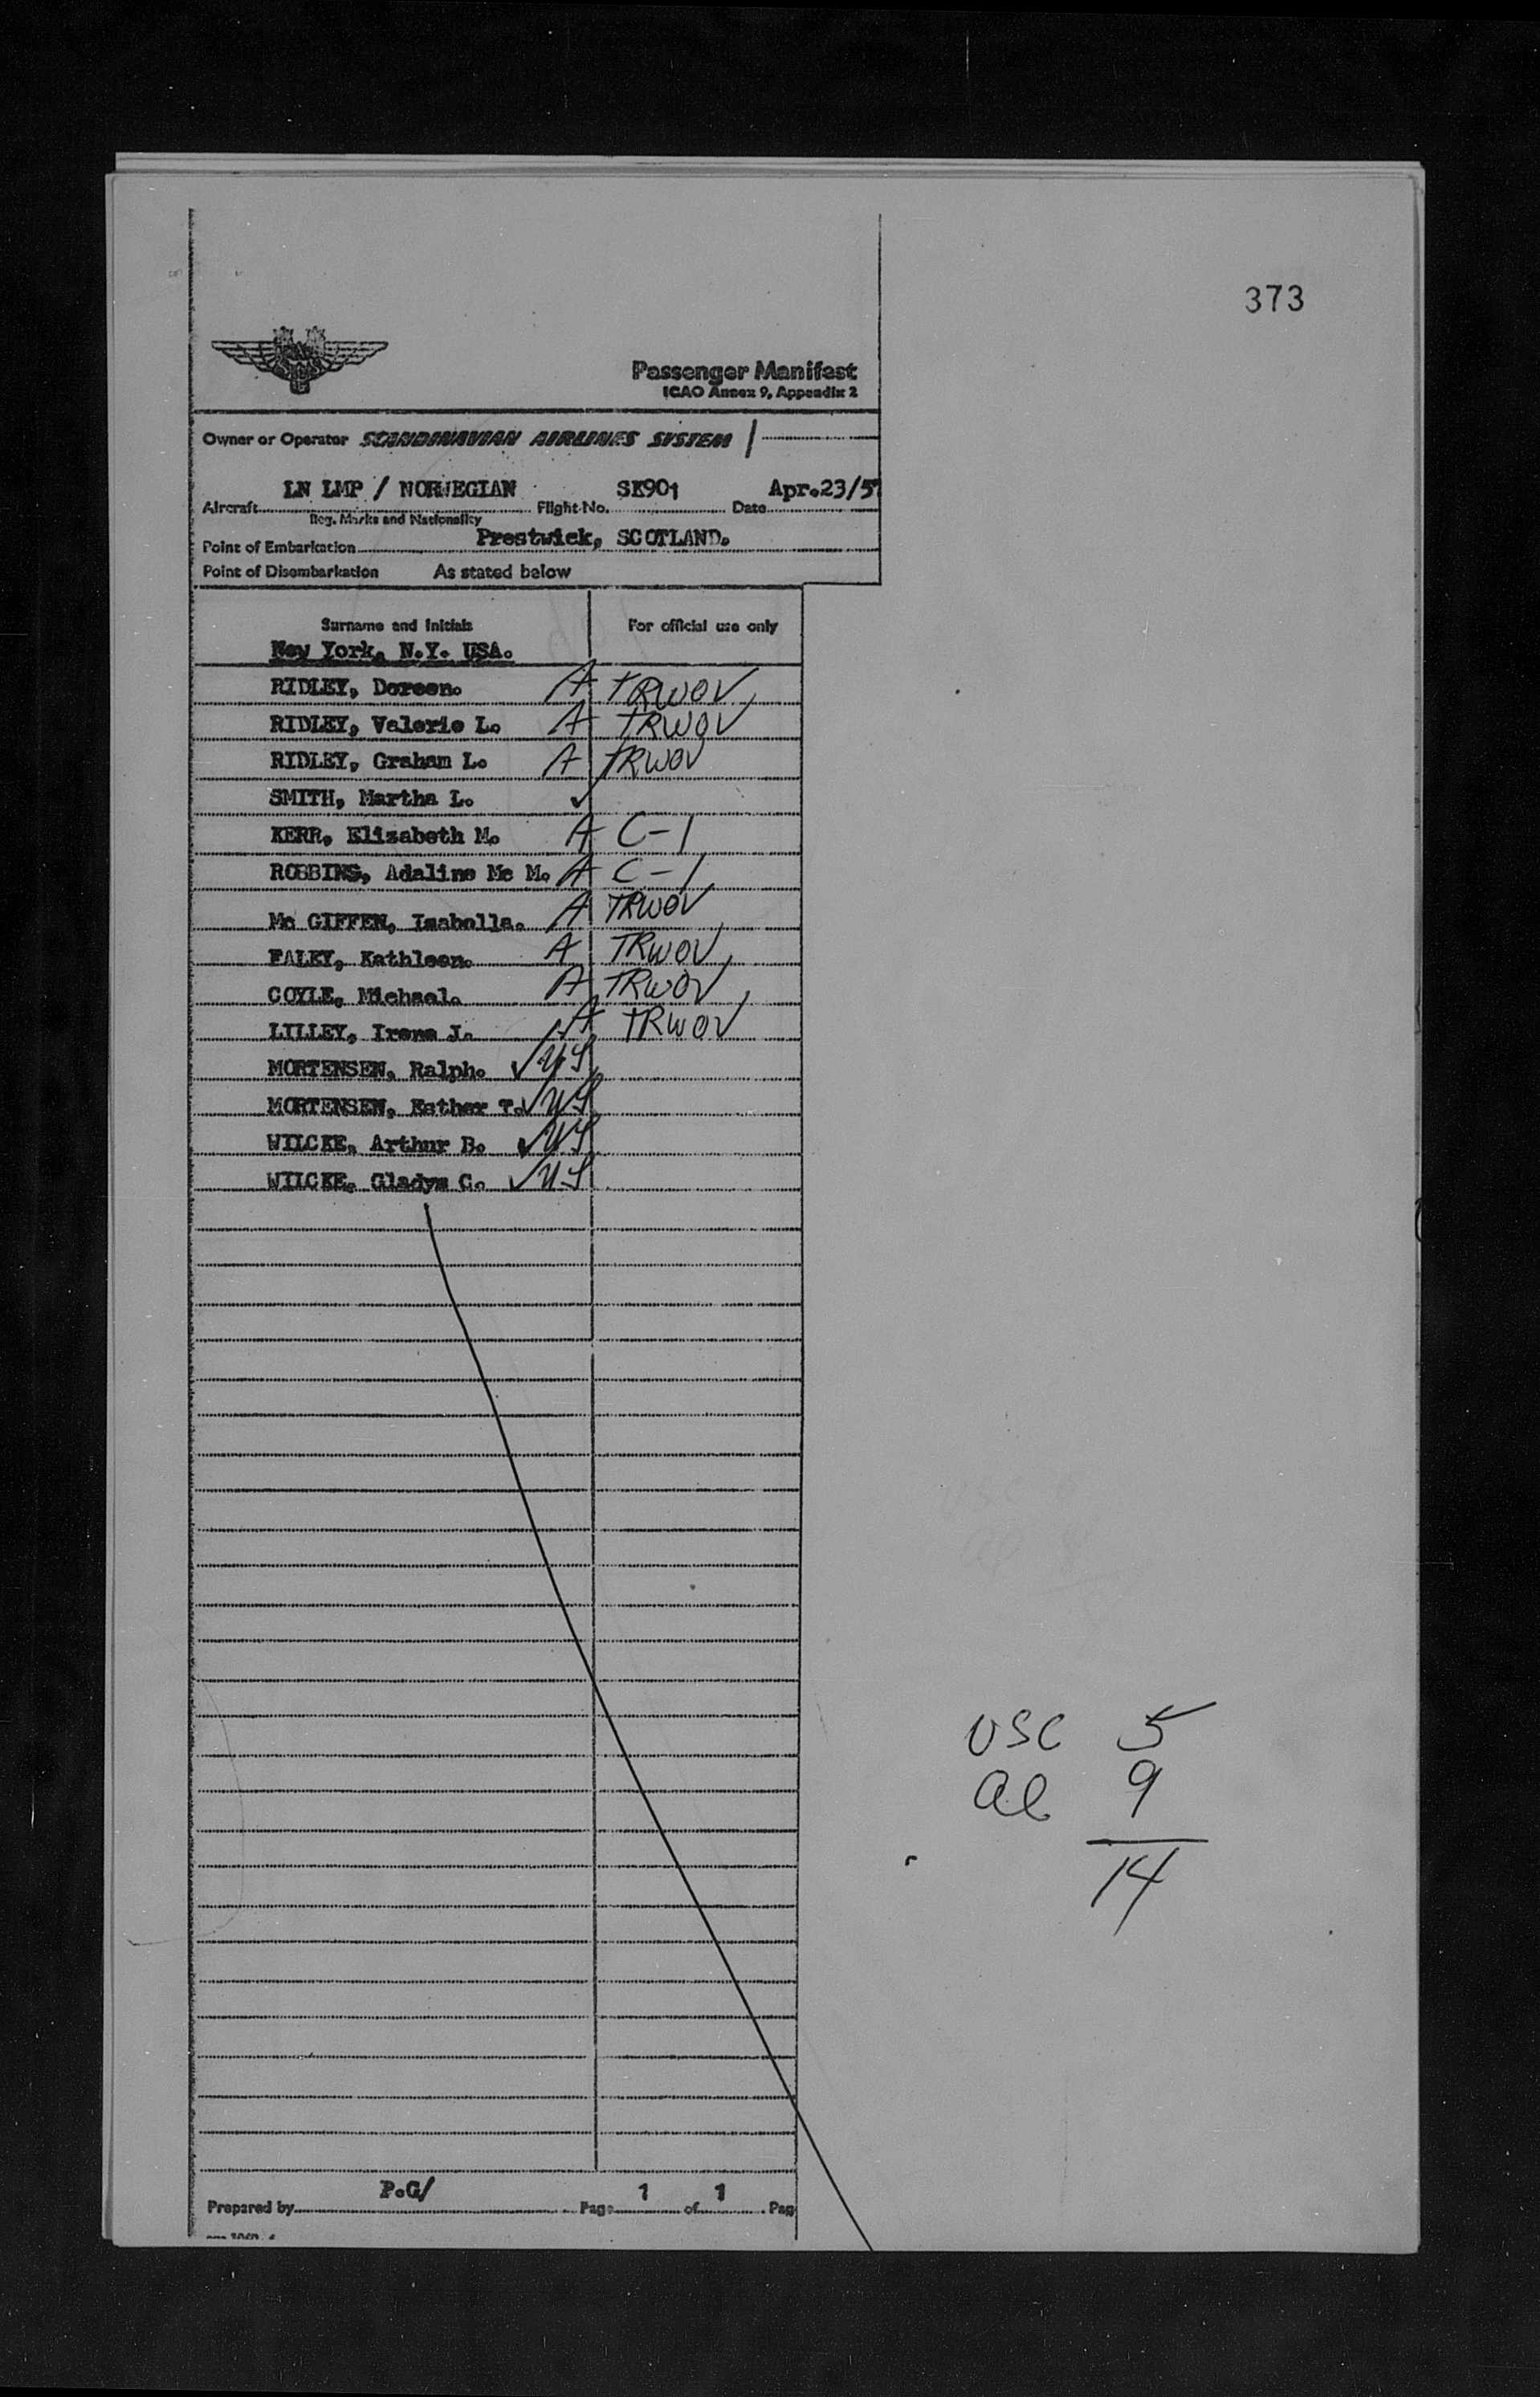 373
Passenger Manifest
ICAO Annex 9, Appendix 2
Owner or Operator SCANDINAVIAN AIRLINES SYSTEM
LN LMP / NORWEGIAN SK901 Apr.23/5
Aircraft Flight No. Date
Reg. Marks and Nationality
Point of Embarkation Prestwick, SCOTLAND.
Point of Disembarkation As stated below
Surname and Initials For official use only
New York, N.Y. USA.
RIDLEY, Doreen. A TRWOV
RIDLEY, Valerie L. A TRWOV
RIDLEY, Graham L. A TRWOV
SMITH, Martha L. ✓
KERR, Elizabeth M. A C-1
ROBBINS, Adaline Mc M. A C-1
Mc GIFFEN, Isabella. A TRWOV
FALEY, Kathleen. A TRWOV
COYLE, Michael. A TRWOV
LILLEY, Irene J. A TRWOV
MORTENSEN, Ralph. ✓ US
MORTENSEN, Esther T. ✓ US
WILCKE, Arthur B. ✓ US
WILCKE, Gladys C. ✓ US
USC 5
al 9
14
P.G/ 1 1
Prepared by Page of Pag